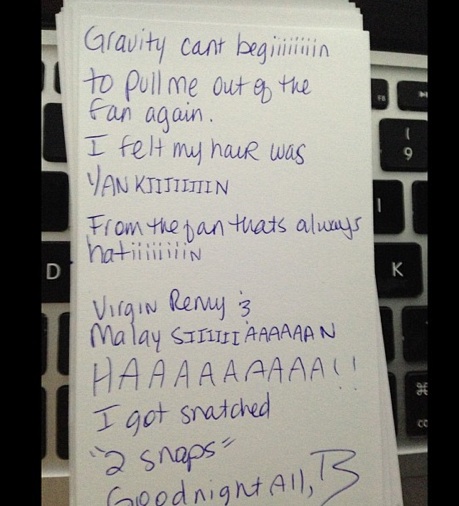 Gravity cant begiiiiiiiin
to pull me out of the
fan again.
I felt my hair was
YANKIIIIIIIIN
From the fan thats always
hatiiiiiiiiN
Virgin Remy &
Malay SIIIIII AAAAAAN
HAAAAAAAAA!!
I got snatched
"2 snaps"
Goodnight All, B
F8
(
9
I
D
K
⌘